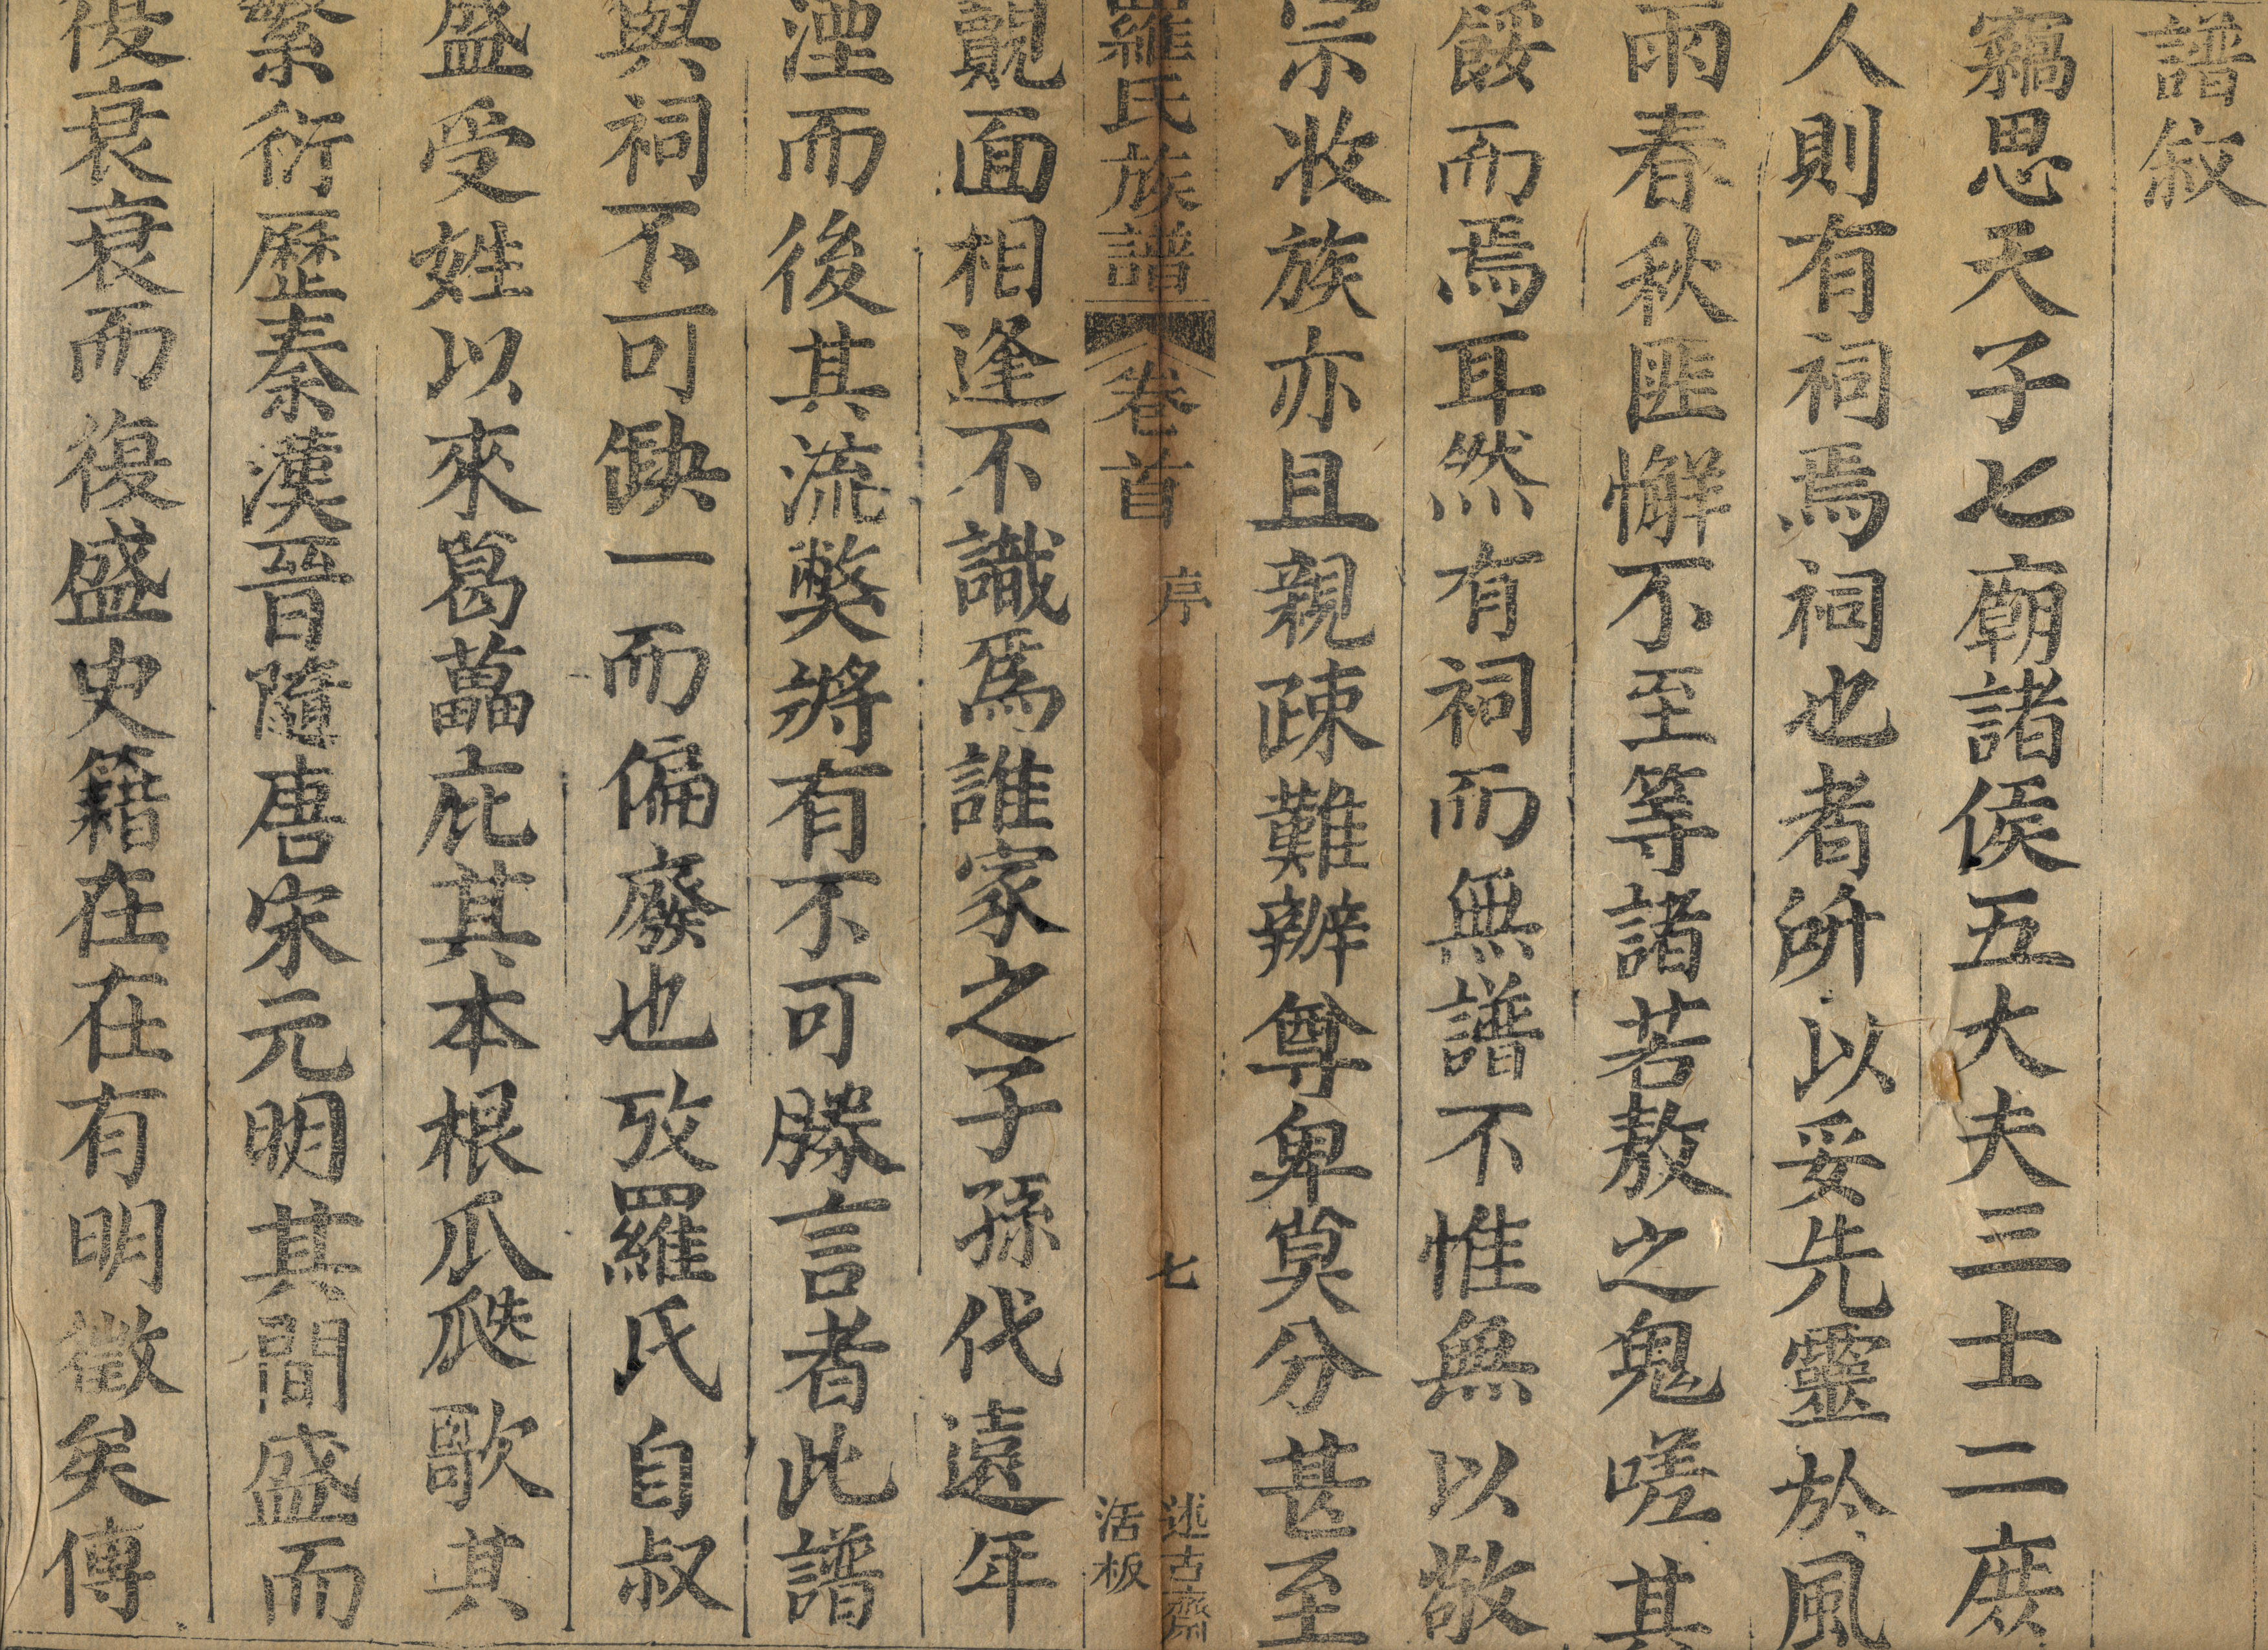 譜敘
竊思天子七廟諸侯五大夫三士二庶
人則有祠焉祠也者所以妥先靈於風
雨春秋匪懈不至等諸若敖之鬼嗟其
餒而焉耳然有祠而無譜不惟無以敬
宗收族亦且親疎難辨尊卑莫分甚至
羅氏族譜 卷首 序 七 述古齋活板
覿面相逢不識爲誰家之子孫代遠年
湮而後其流獘將有不可勝言者此譜
與祠不可缺一而偏廢也攷羅氏自叔
盛受姓以來葛藟庇其本根瓜瓞歌其
繁衍歷秦漢晉隨唐宋元明其間盛而
復衰衰而復盛史籍在在有明徵矣傳